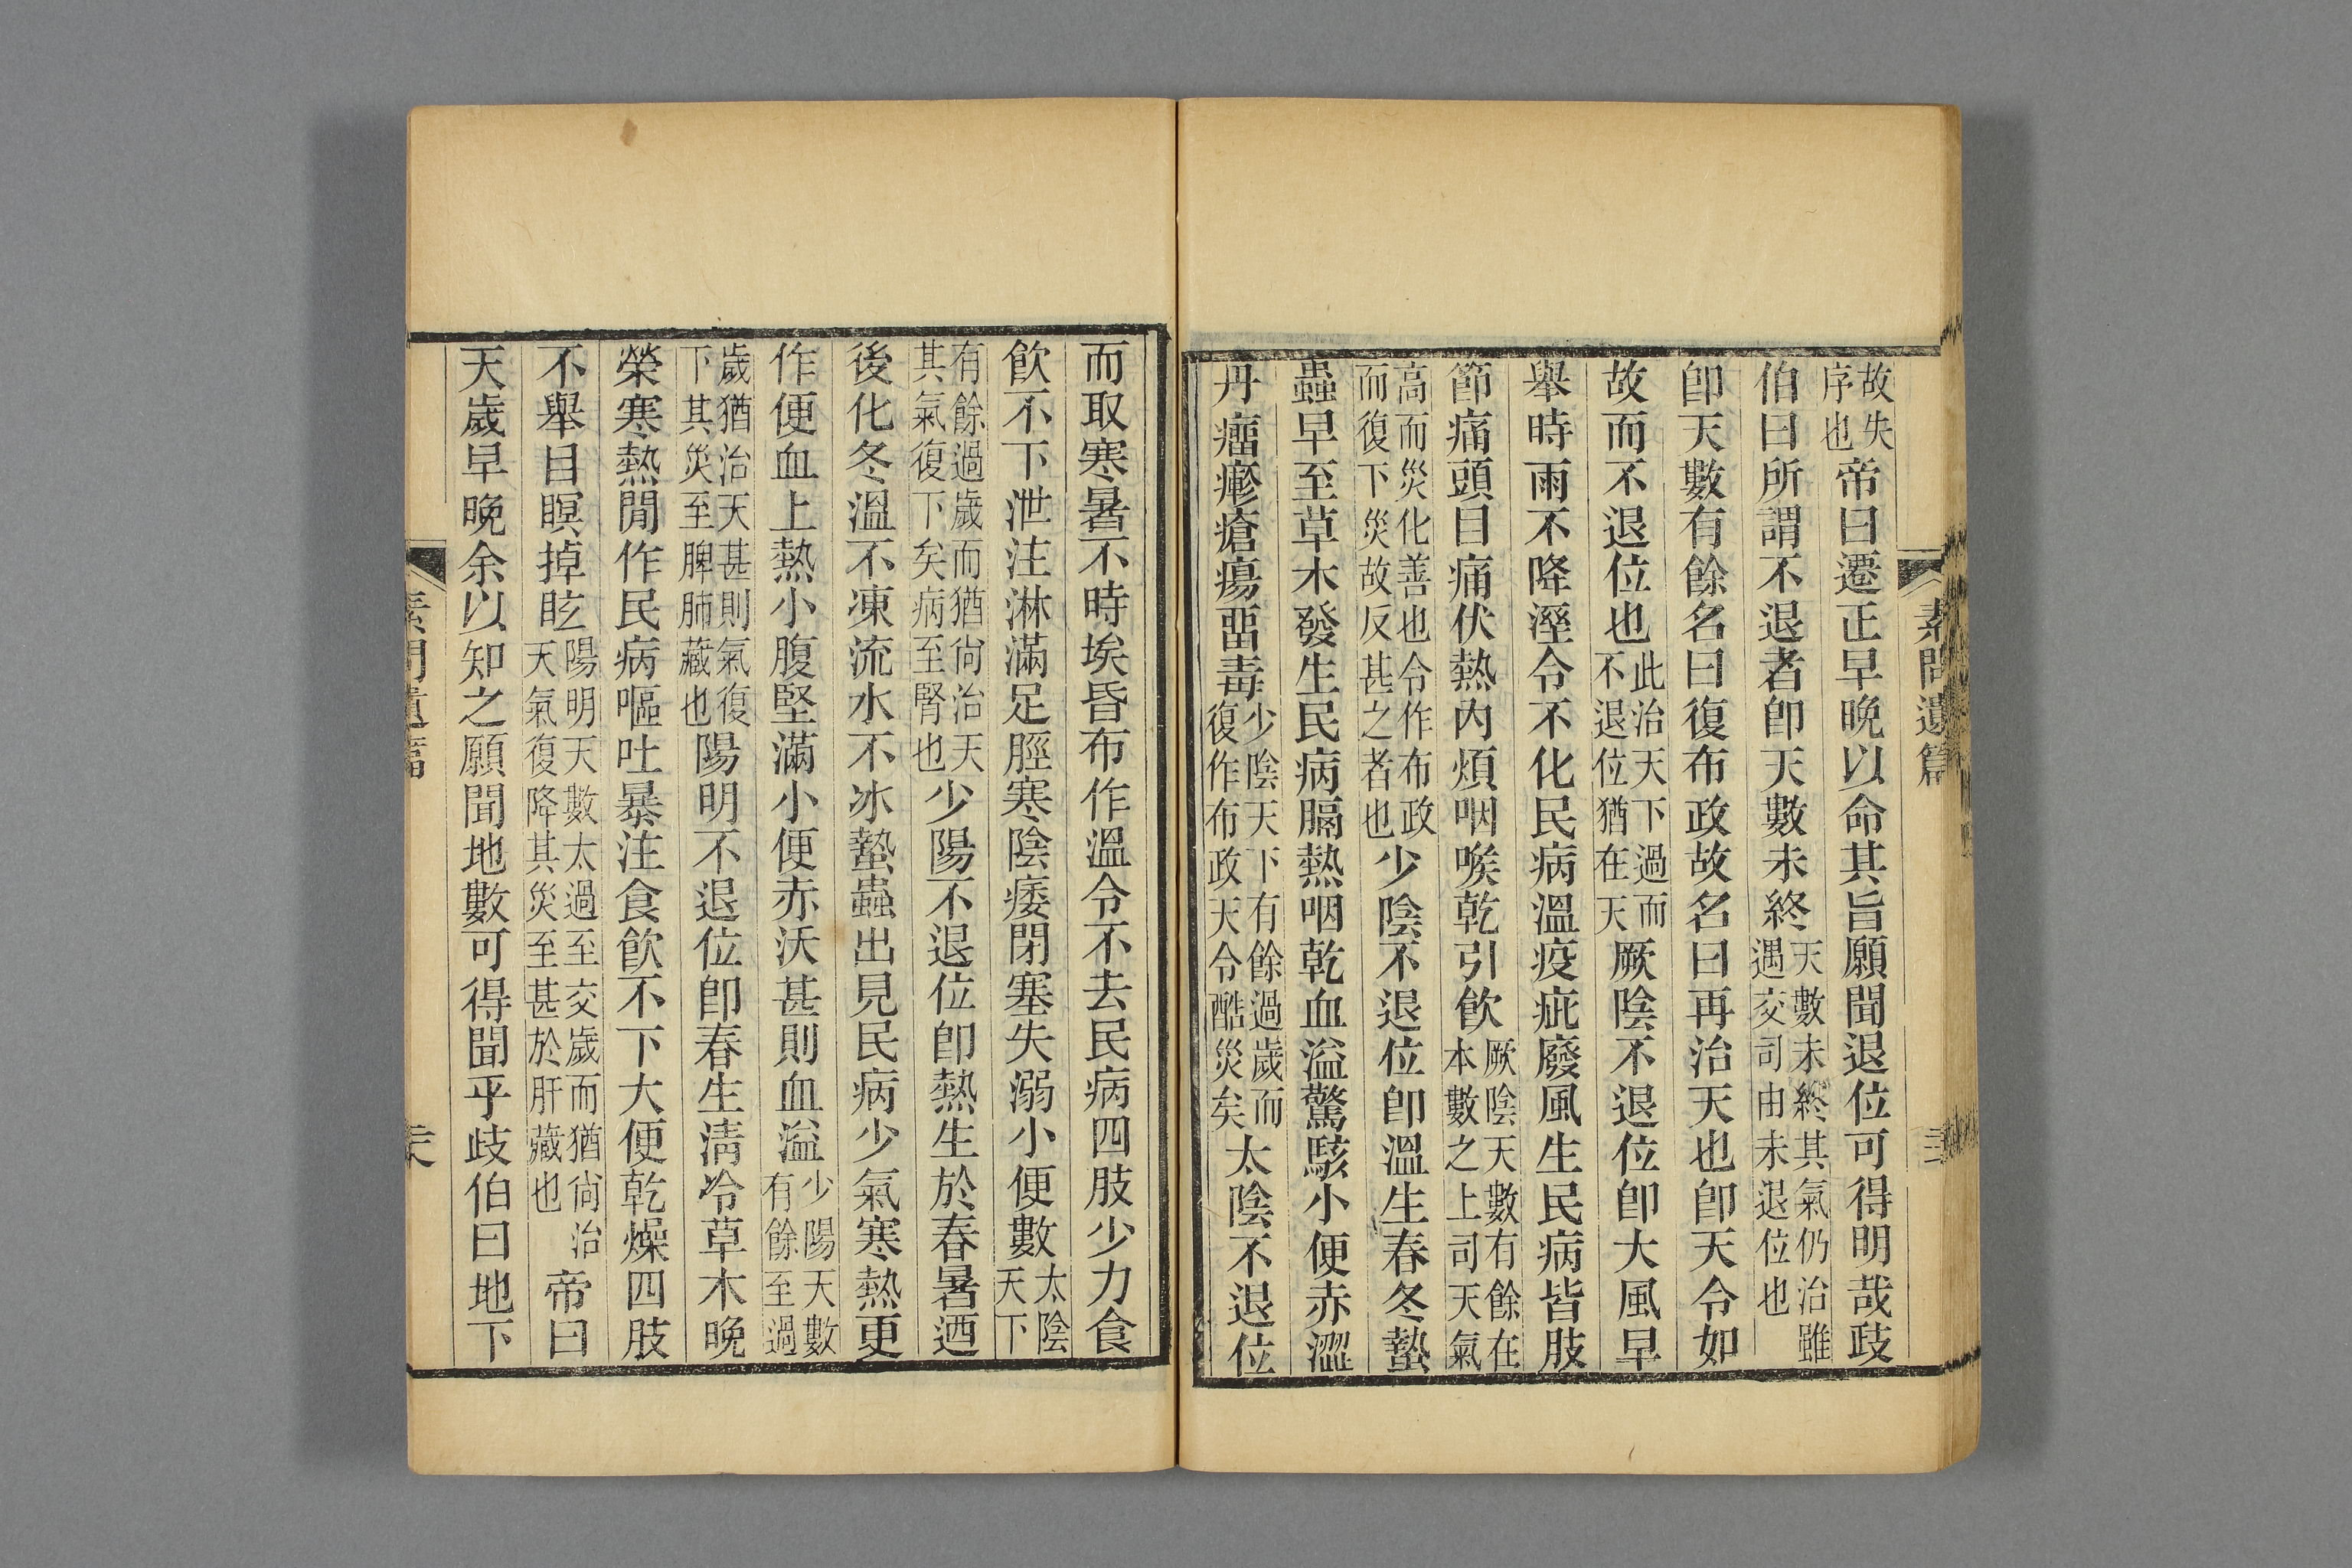 素問遺篇
故失序也帝曰遷正早晚以命其旨願聞退位可得明哉歧
伯曰所謂不退者卽天數未終天數未終其氣仍治雖遇交司由未退位也
卽天數有餘名曰復布政故名曰再治天也卽天令如
故而不退位也此治天下過而不退位猶在天厥陰不退位卽大風早
舉時雨不降溼令不化民病溫疫疵廢風生民病皆肢
節痛頭目痛伏熱內煩咽喉乾引飮厥陰天數有餘在本數之上司天氣
高而災化善也令作布政而復下災故反甚之者也少陰不退位卽溫生春冬蟄
蟲早至草木發生民病膈熱咽乾血溢驚駭小便赤澀
丹瘤𤺋瘡瘍畱毒少陰天下有餘過歲而復作布政天令酷災矣太陰不退位
而取寒暑不時埃昏布作溫令不去民病四肢少力食
飮不下泄注淋滿足脛寒陰痿閉塞失溺小便數太陰天下
有餘過歲而猶尙治天其氣復下矣病至腎也少陽不退位卽熱生於春暑迺
後化冬溫不凍流水不冰蟄蟲出見民病少氣寒熱更
作便血上熱小腹堅滿小便赤沃甚則血溢少陽天數有餘至過
歲猶治天甚則氣復下其災至脾肺藏也陽明不退位卽春生淸冷草木晚
榮寒熱閒作民病嘔吐暴注食飮不下大便乾燥四肢
不舉目瞑掉眩陽明天數太過至交歲而猶尙治天氣復降其災至甚於肝藏也帝曰
天歲早晚余以知之願聞地數可得聞乎歧伯曰地下
素問遺篇